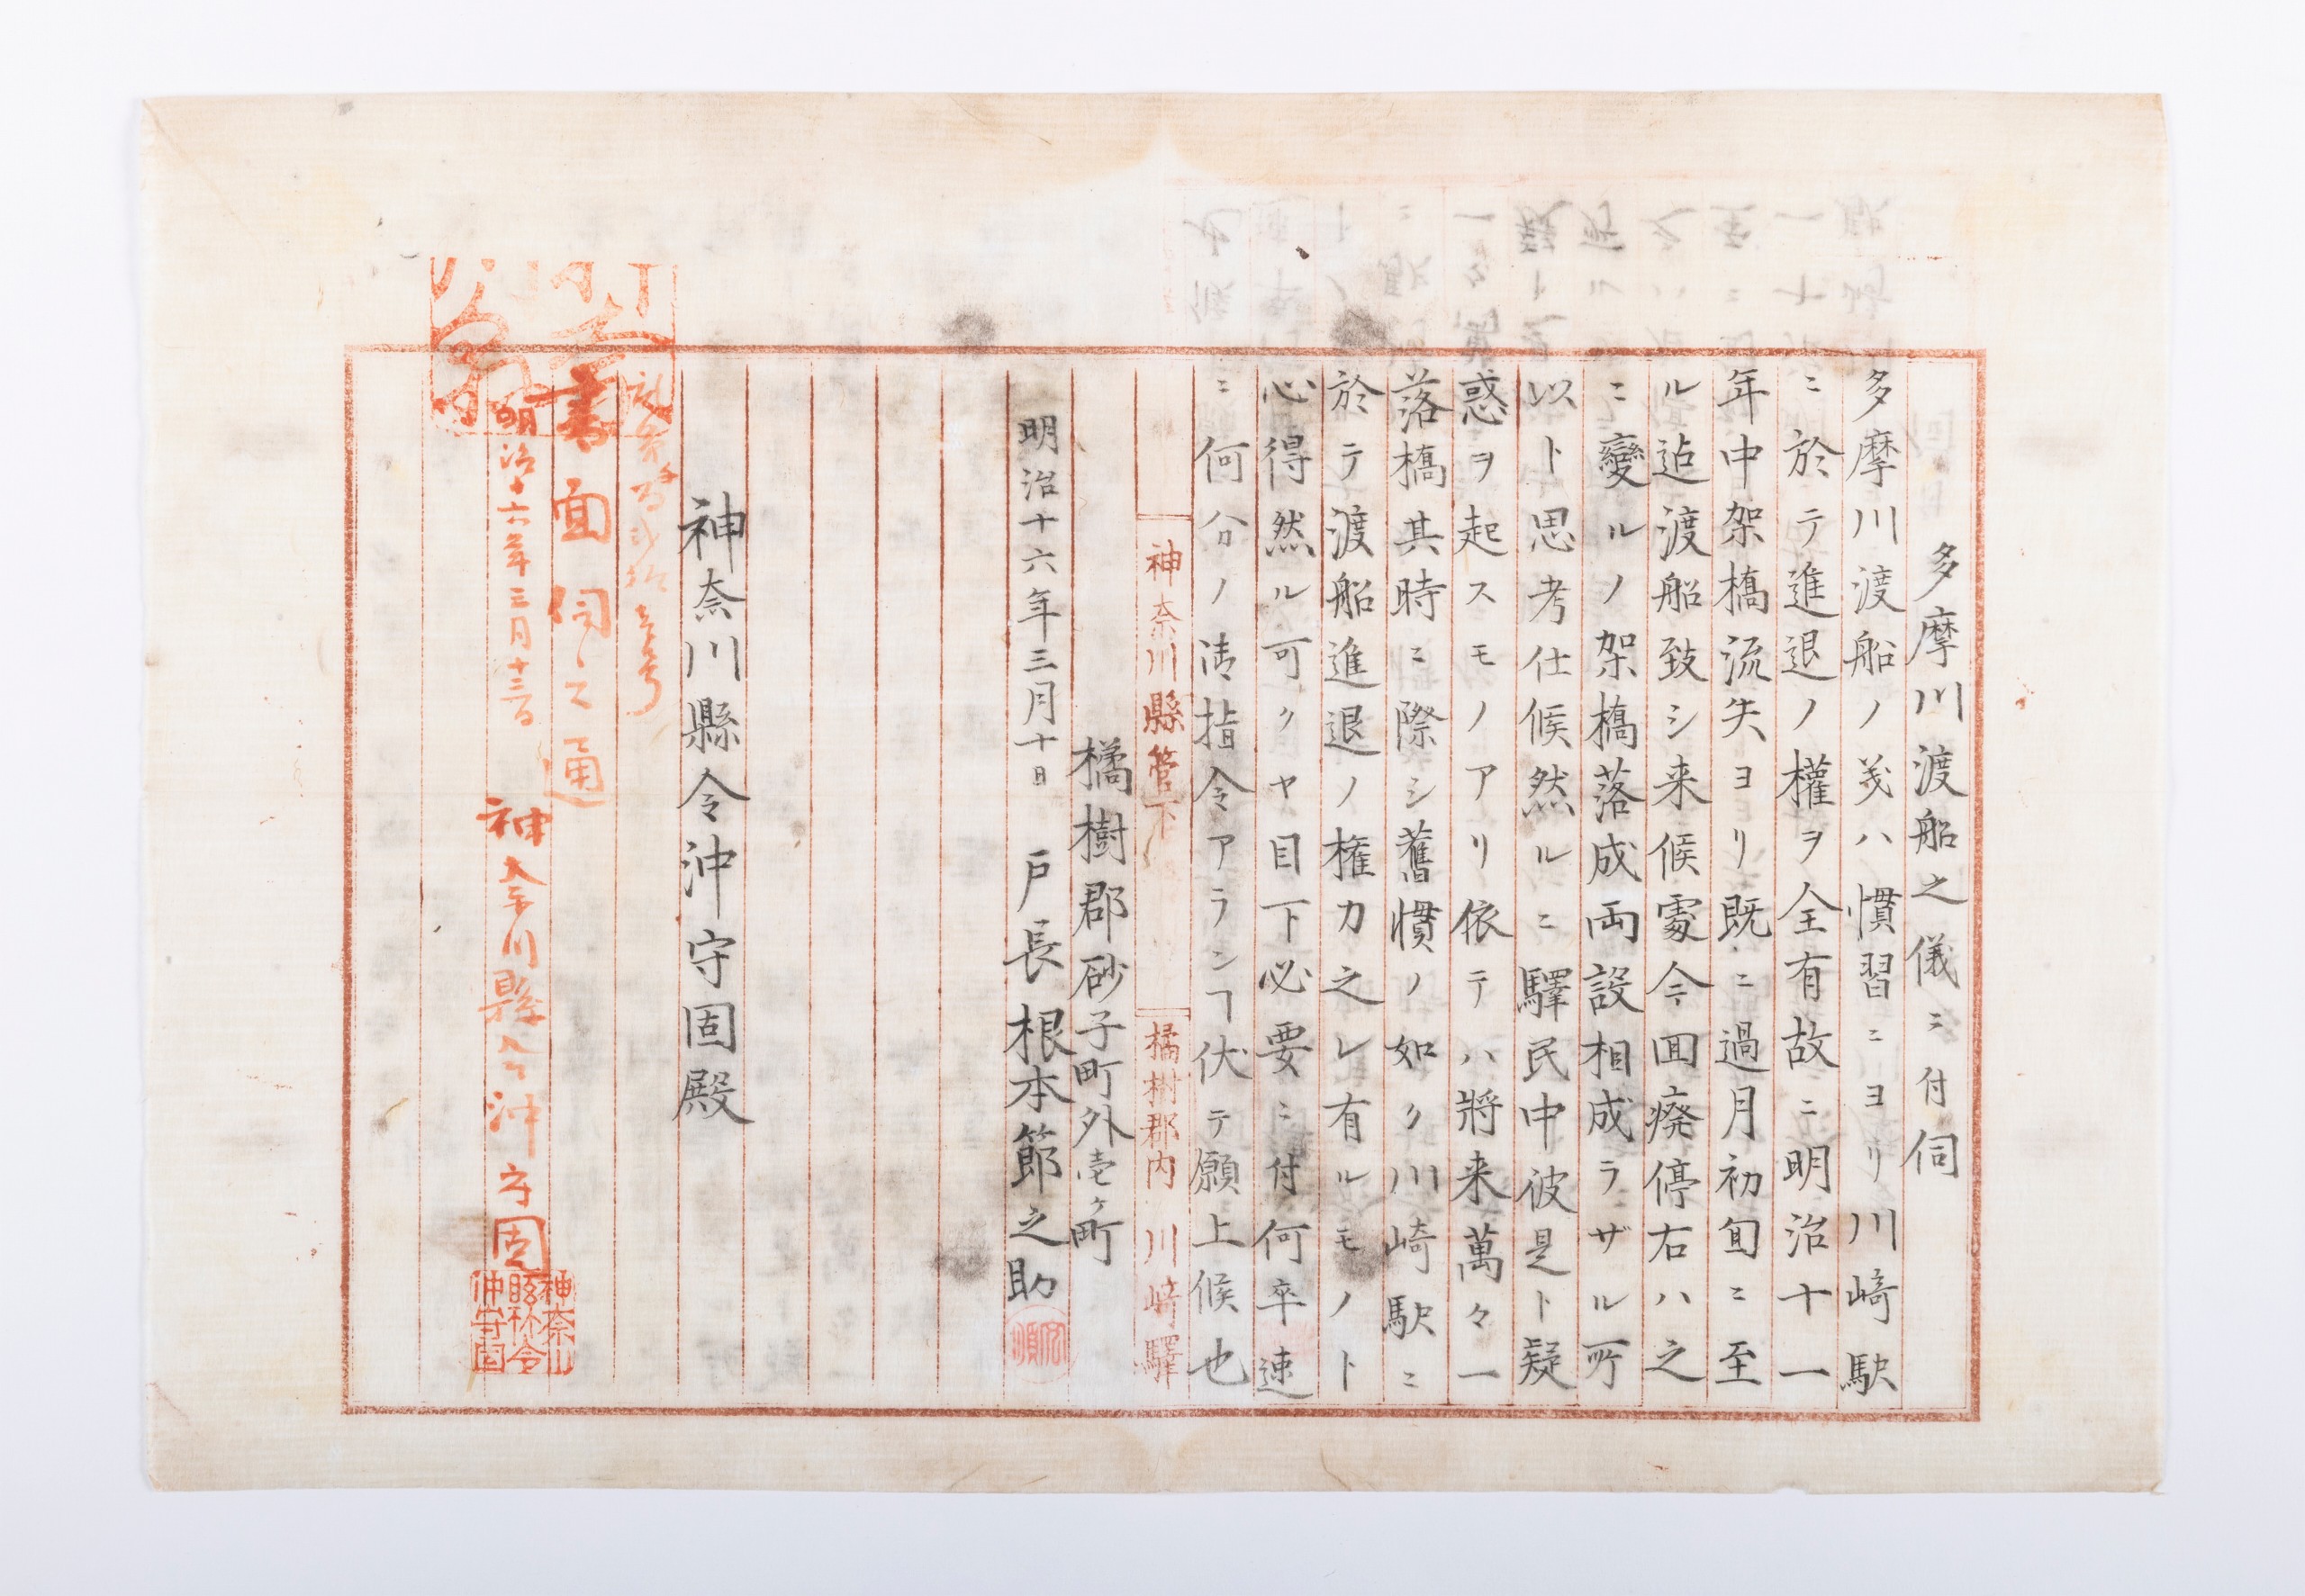 多摩川渡船之儀ニ付伺
多摩川渡船ノ義ハ慣習ニヨリ川﨑駅
ニ於テ進退ノ權ヲ全有故ニ明治十一
年中架橋流失ヨリ既ニ過月初旬ニ至
ル迠渡船致シ来候處今回廃停右ハ之
ニ變ルノ架橋落成両設相成ラザル所
以ト思考仕候然ルニ驛民中彼是ト疑
惑ヲ起スモノアリ依テハ將来萬々一
落橋其時ニ際シ舊慣ノ如ク川崎駅ニ
於テ渡船進退ノ権力之レ有ルモノト
心得然ル可クヤ目下必要ニ付何卒速
ニ何分ノ御指令アランヿ伏テ願上候也
神奈川縣管下 橘樹郡内 川崎驛
橘樹郡砂子町外壱ヶ町
明治十六年三月十日 戸長 根本節之助
神奈川縣令沖守固殿
書面伺之通
明治十六年三月十三日
神奈川縣令沖守固
神奈川
縣令
沖守固